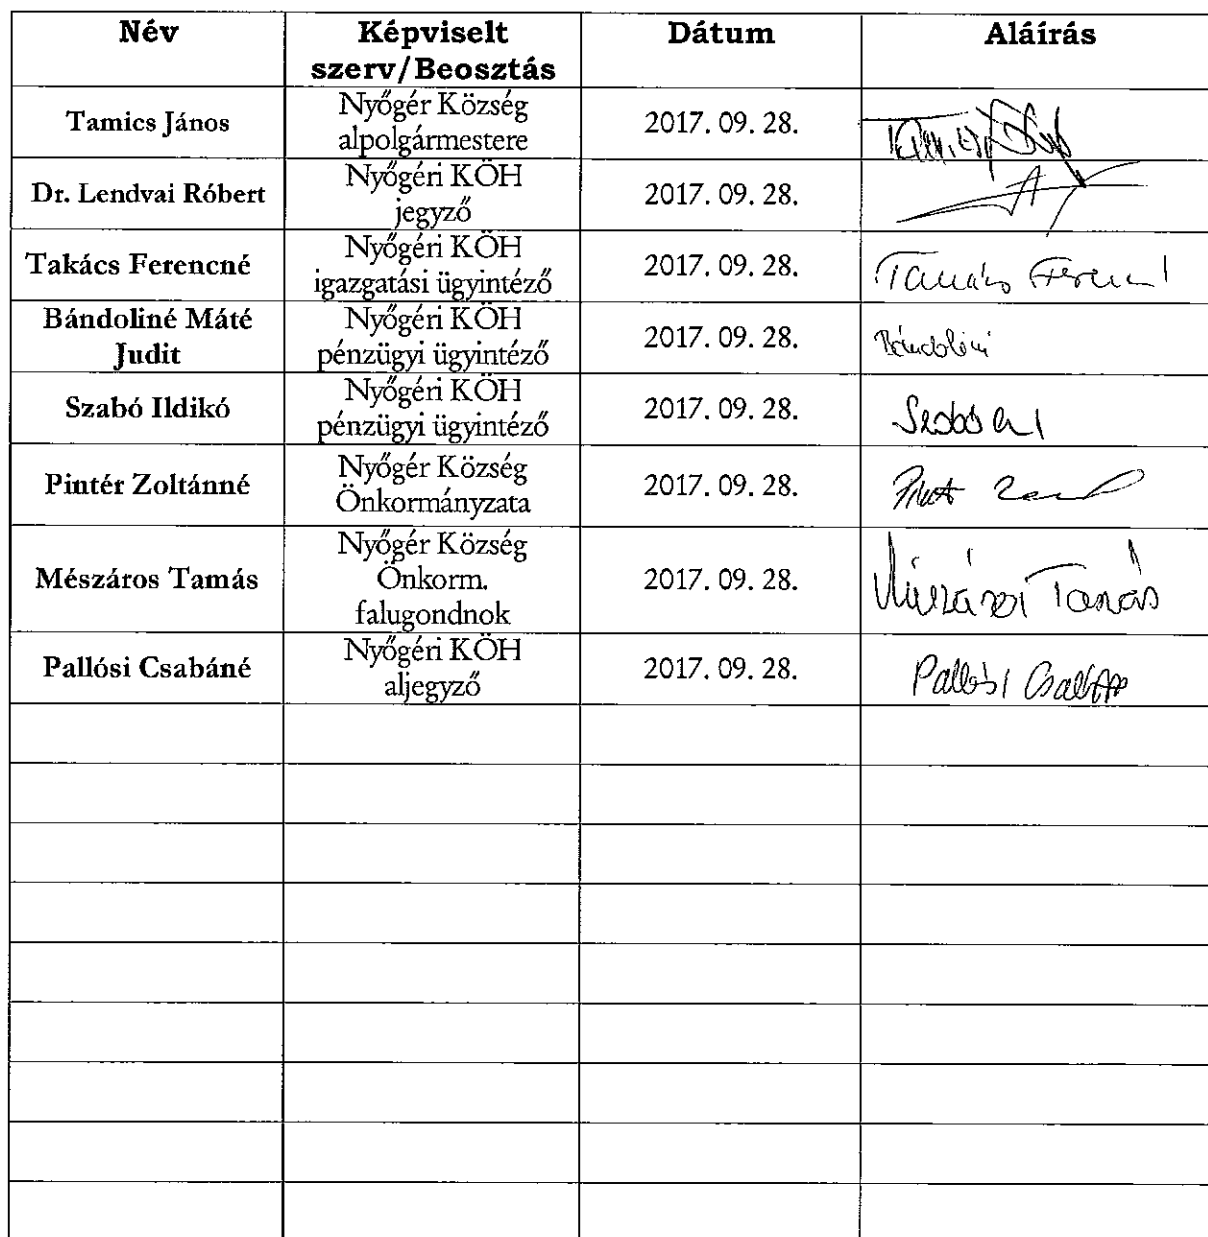 Név
Képviselt
szerv/Beosztás
Dátum
Aláírás
Tamics János
Nyőgér Község
alpolgármestere
2017. 09. 28.
Dr. Lendvai Róbert
Nyőgéri KÖH
jegyző
2017. 09. 28.
Takács Ferencné
Nyőgéri KÖH
igazgatási ügyintéző
2017. 09. 28.
Bándoliné Máté
Judit
Nyőgéri KÖH
pénzügyi ügyintéző
2017. 09. 28.
Szabó Ildikó
Nyőgéri KÖH
pénzügyi ügyintéző
2017. 09. 28.
Pintér Zoltánné
Nyőgér Község
Önkormányzata
2017. 09. 28.
Mészáros Tamás
Nyőgér Község
Önkorm.
falugondnok
2017. 09. 28.
Mészáros Tamás
Pallósi Csabáné
Nyőgéri KÖH
aljegyző
2017. 09. 28.
Pallósi Csabáné